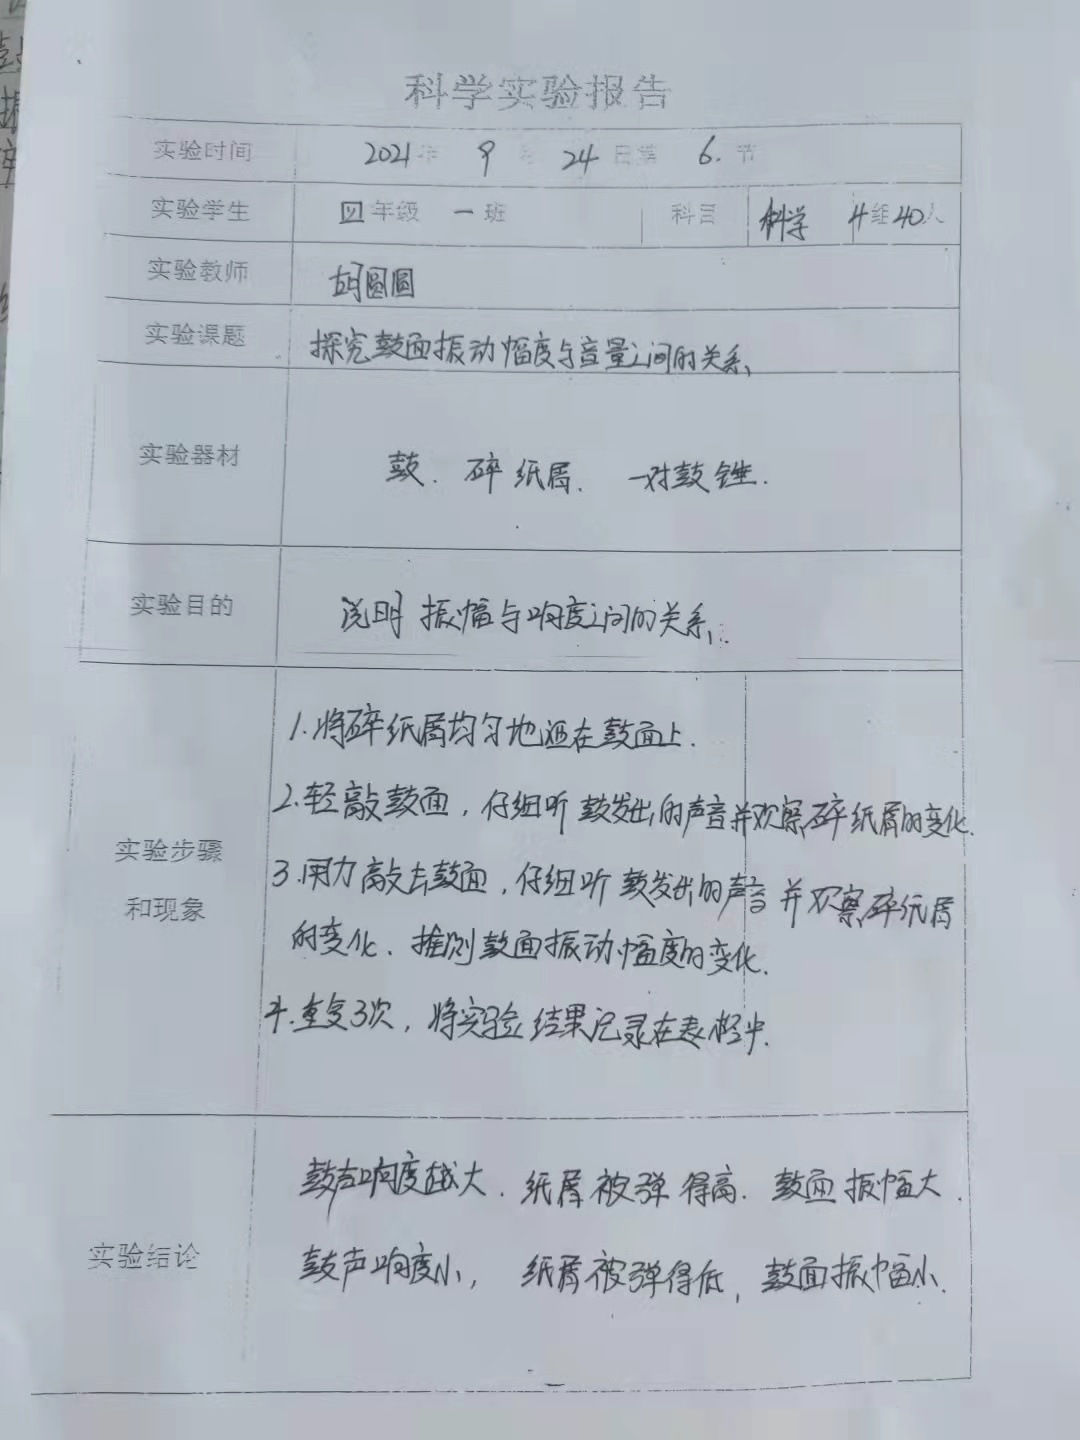 科学实验报告
实验时间 2021年 9月 24日第 6.节
实验学生 四年级 一班 科目 科学 4组40人
实验教师 胡圆圆
实验课题 探究鼓面振动幅度与音量之间的关系
实验器材 鼓、碎纸屑、一对鼓锤.
实验目的 说明振幅与响度之间的关系.
实验步骤
和现象
1.将碎纸屑均匀地洒在鼓面上.
2.轻敲鼓面,仔细听鼓发出的声音并观察碎纸屑的变化.
3.用力敲击鼓面,仔细听鼓发出的声音并观察碎纸屑
的变化、推测鼓面振动幅度的变化.
4.重复3次,将实验结果记录在表格中.
实验结论
鼓声响度越大.纸屑被弹得高.鼓面振幅大.
鼓声响度小,纸屑被弹得低,鼓面振幅小.